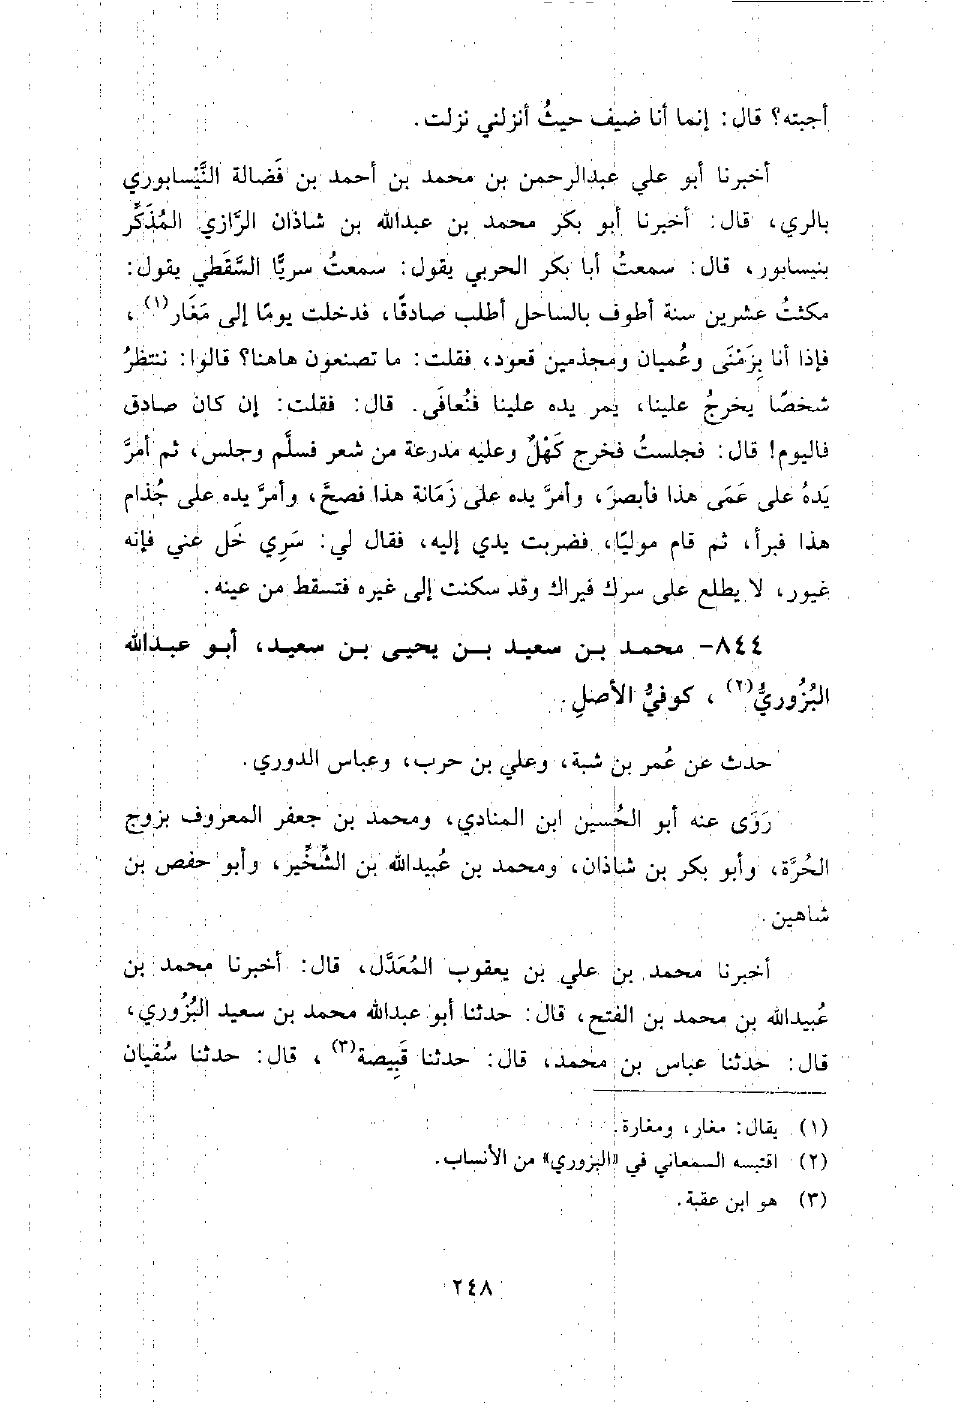 أجبته؟ قال: إنما أنا ضيف حيثُ أنزلني نزلت.
أخبرنا أبو علي عبدالرحمن بن محمد بن أحمد بن فَضالة النَّيْسابوري
بالري، قال: أخبرنا أبو بكر محمد بن عبدالله بن شاذان الرَّازي المُذَكِّر
بنيسابور، قال: سمعتُ أبا بكر الحربي يقول: سمعتُ سريًّا السَّقَطي يقول:
مكثتُ عشرين سنة أطوف بالساحل أطلب صادقًا، فدخلت يومًا إلى مَغَار(١)،
فإذا أنا بِزَمْنَى وعُميان ومجذمين قعود، فقلت: ما تصنعون هاهنا؟ قالوا: ننتظرُ
شخصًا يخرجُ علينا، يمر يده علينا فنُعافَى. قال: فقلت: إن كان صادق
فاليوم! قال: فجلستُ فخرج كَهْلٌ وعليه مدرعة من شعر فسلَّم وجلس، ثم أمرَّ
يَدهُ على عَمَى هذا فأبصرَ، وأمرَّ يده على زَمَانة هذا فصحَّ، وأمرَّ يده على جُذام
هذا فبرأ، ثم قام موليًا، فضربت يدي إليه، فقال لي: سَرِي خَل عني فإنه
غيور، لا يطلع على سرك فيراك وقد سكنت إلى غيره فتسقط من عينه.
٨٤٤- محمد بن سعيد بن يحيى بن سعيد، أبو عبدالله
البُزُوريُّ(٢)، كوفيُّ الأصلِ.
حدث عن عُمر بن شبة، وعلي بن حرب، وعباس الدوري.
رَوَى عنه أبو الحُسين ابن المنادي، ومحمد بن جعفر المعروف بزوج
الحُرَّة، وأبو بكر بن شاذان، ومحمد بن عُبيدالله بن الشِّخِّير، وأبو حفص بن
شاهين.
أخبرنا محمد بن علي بن يعقوب المُعَدَّل، قال: أخبرنا محمد بن
عُبيدالله بن محمد بن الفتح، قال: حدثنا أبو عبدالله محمد بن سعيد البُزُوري،
قال: حدثنا عباس بن محمد، قال: حدثنا قَبِيصة(٣)، قال: حدثنا سُفيان
(١) يقال: مغار، ومغارة.
(٢) اقتبسه السمعاني في «البزوري» من الأنساب.
(٣) هو ابن عقبة.
٢٤٨